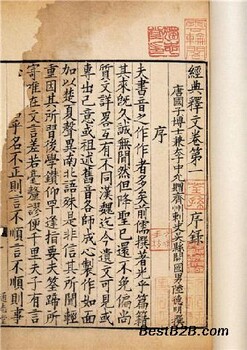 經典釋文卷第一 序錄
唐國子博士兼太子中允贈齊州刺史吳縣開國男陸德明撰
序
夫書音之作作者多矣前儒撰著光乎篇籍
其來既久誠無閒然但降聖已還不免偏尚
質文詳略互有不同漢魏迄今遺文可見或
專出己意或祖述舊音各師成心製作如面
加以楚夏聲異南北語殊是非信其所聞輕
重因其所習後學鑽仰罕逢指要夫筌蹄所
寄唯在文言差若毫釐謬便千里夫子有言
乎名不正則言不順言不順則事
通志堂
BestB2B.com